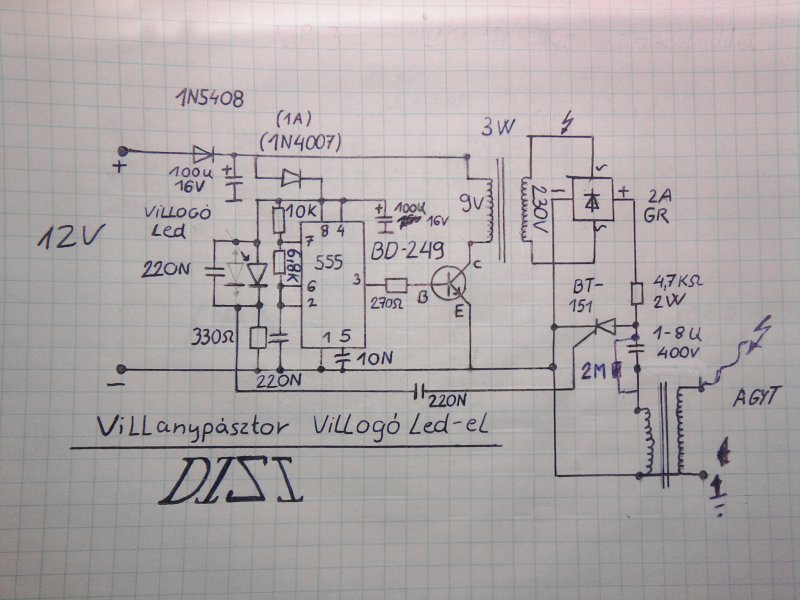 1N5408
(1A)
(1N4007)
3W
+
100u
16V
+
10K
8 4
+
100u
16V
9V
230V
+
2A
GR
VILLOGÓ
Led
12V
7
BD-249
220N
6,8K
555
C
6
3
BT-
151
4,7KΩ
2W
2
270Ω
B
E
330Ω
1 5
1-8u
400V
10N
2M
-
220N
220N
AGYT
VILLanypásztor VILLogó Led-el
DISI